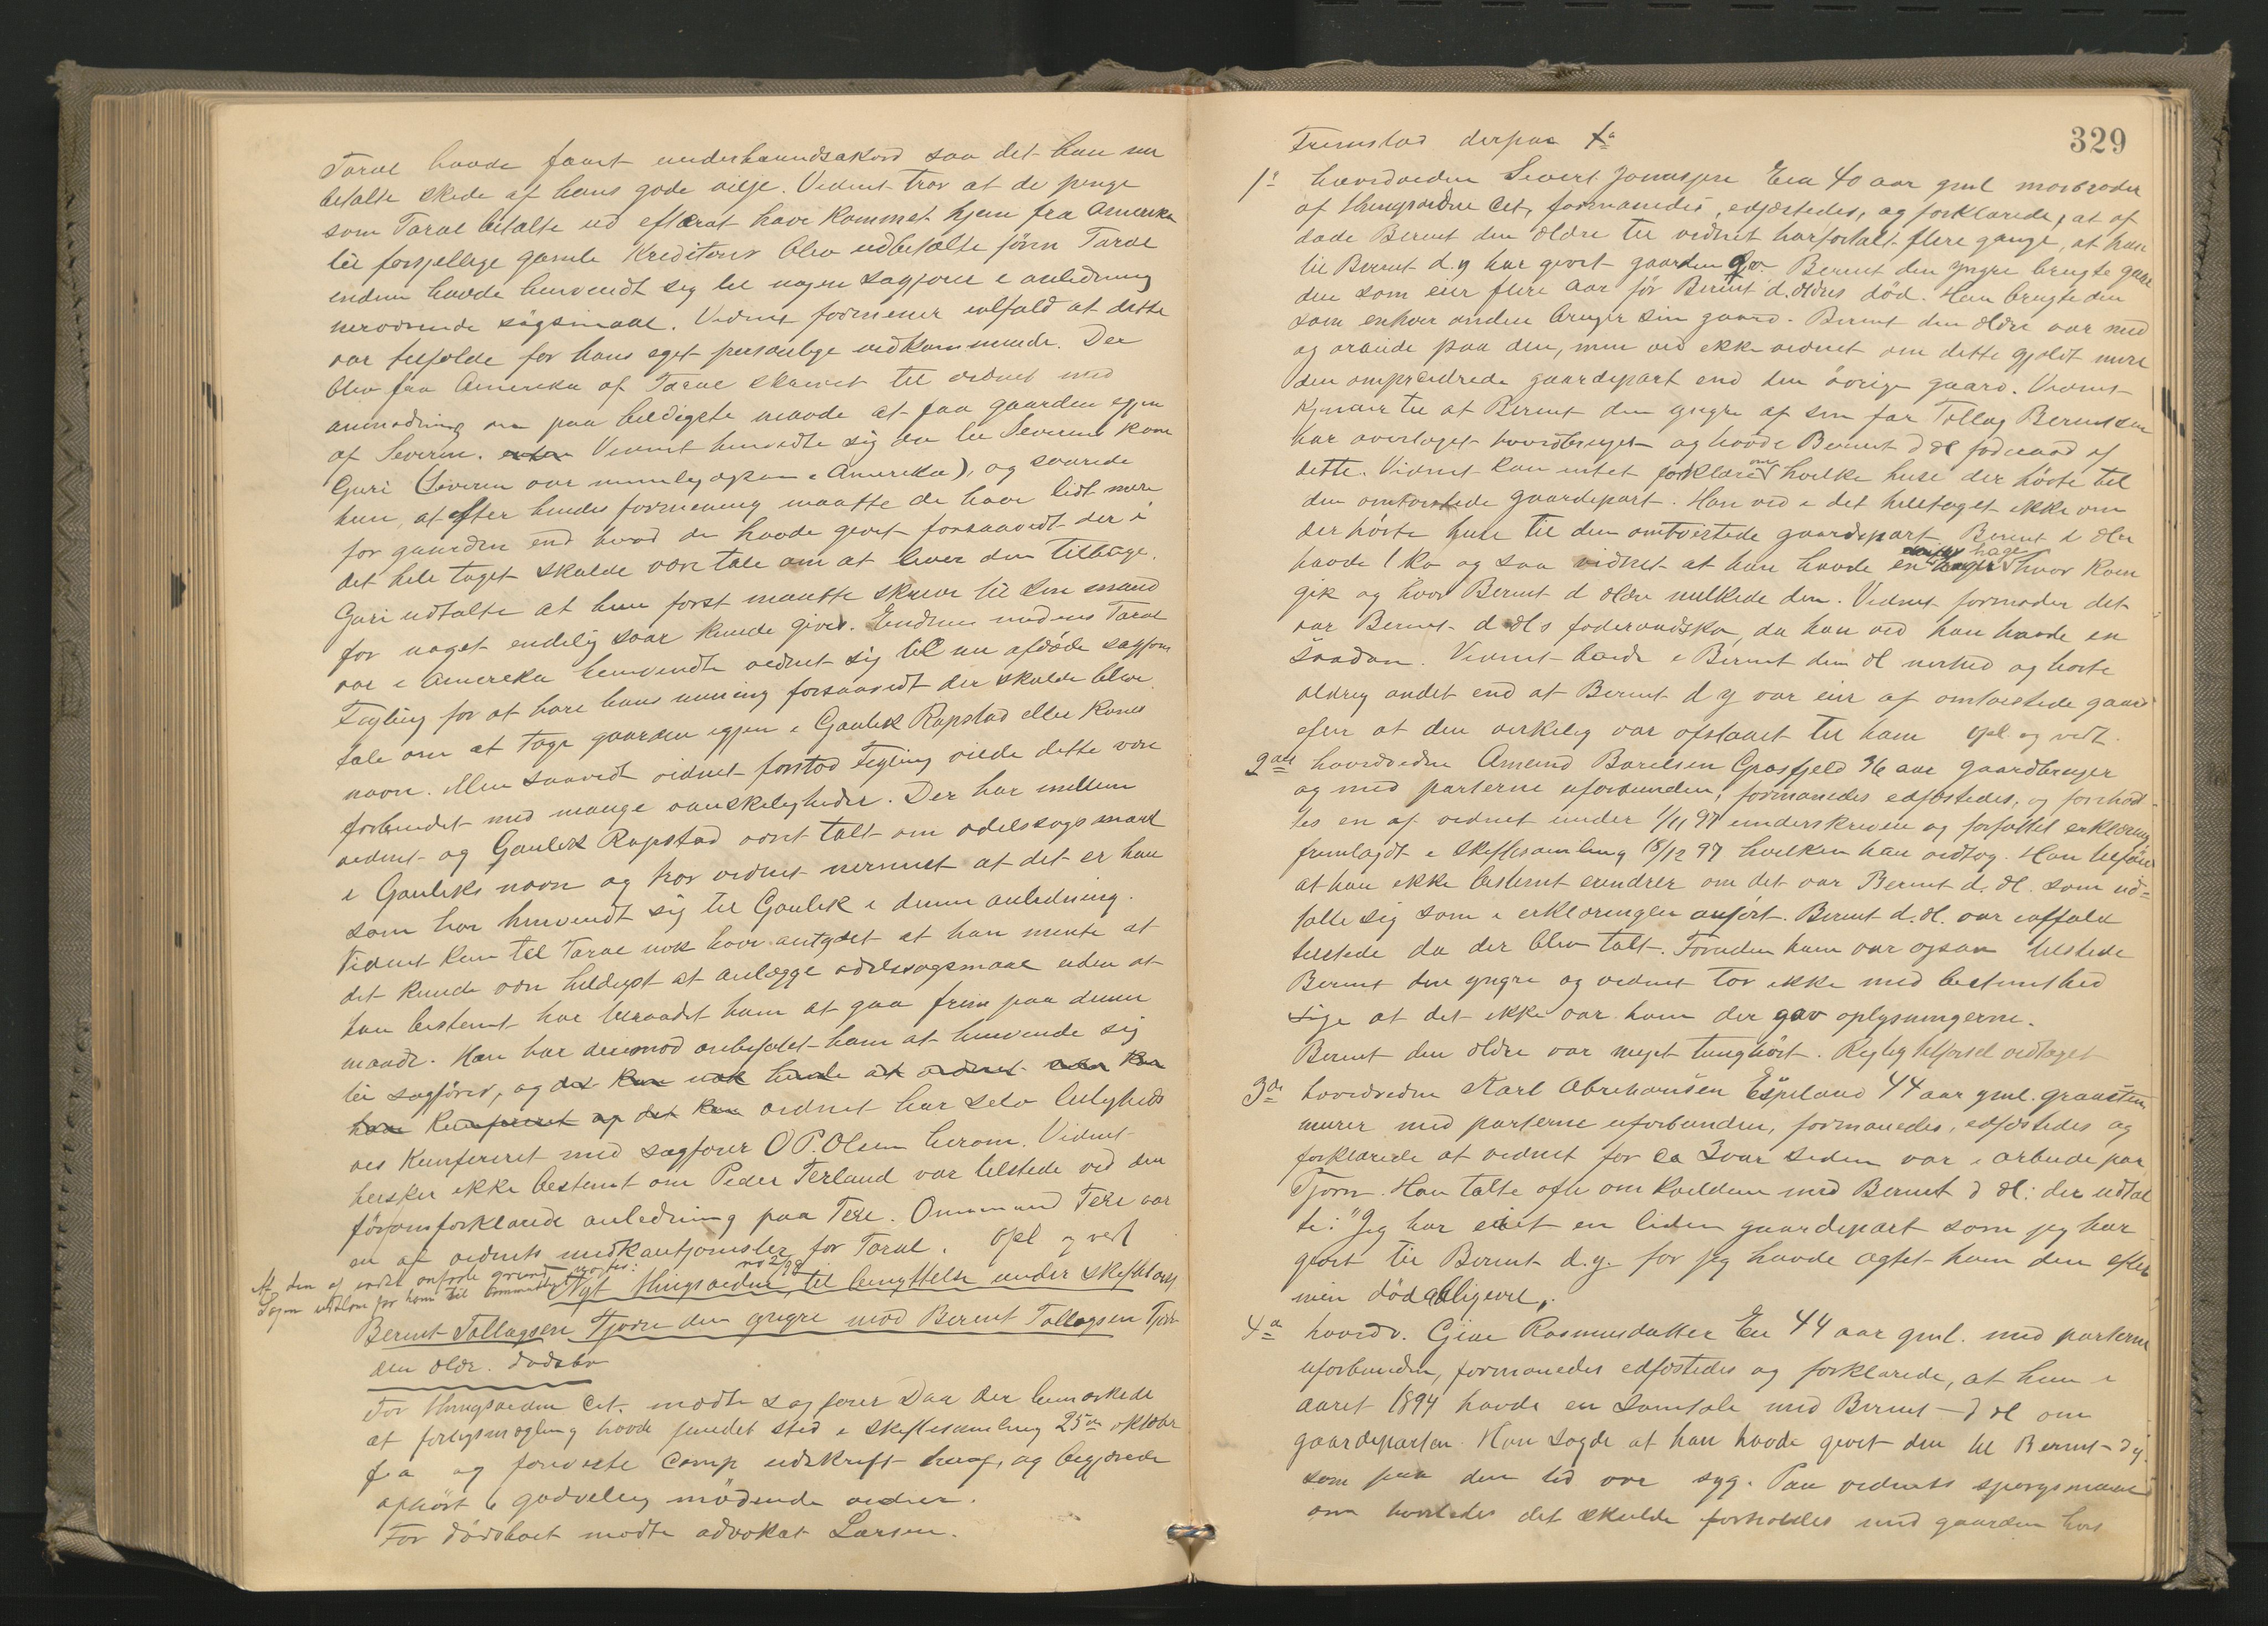 Taral havde faaet underhaandsakord saa det han nu
betalte skede af hans gode vilje. Vidnet tror at de penge
som Taral betalte ud efterat have kommet hjem fra Amerika
til forsjellige gamle Kreditorer blev udbetalte förin Taral
endnu havde henvendt sig til nogen sagförer i anledning
nerværende sögsmaal. Vidnet formener ialfald at dette
var tilfælde for hans eget personlige vedkommende. Der
blev fra Amerika af Taral skrevet til vidnet med
anmodning om paa beldigste maade at faa gaarden igjen
af Severin. Vidnet henvendte sig da til Severins kone
Guri (Severin var nemlig ogsaa i Amerika), og svarede
hun, at efter hendes formening maatte de have lidt mere
for gaarden end hvad de havde givet forsaavidt der i
det hele taget skulde være tale om at lever den tilbage.
Guri udtalte at hun först maatte skrive til sin mand
för noget endelig svar kunde gives. Endnu medens Taral
var i Amerika henvendte vidnet sig til nu afdöde sagförer
Fayling for at höre hans mening forsaavidt der skulde blive
tale om at tage gaarden igjen i Gaulik Rapstad eller Kones
navn. Men saavidt vidnet forstod Fayling vilde dette være
forbundet med mange vanskeligheder. Der har mellem
vidnet og Gaulik Rapstad været talt om odelssøgsmaal
i Gauliks navn og tror vidnet nermest at det er han
som har henvendt sig til Gaulik i denne anledning.
Vidnet kan til Taral nok have antydet at han mente at
det kunde være heldigst at anlægge odelssøgsmaal uden at
han bestemt har tilraadet ham at gaa frem paa denne
maade. Han har derimod anbefalet ham at henvende sig
til sagförer, og det kan nok hende at vidnet
have Kunfereret og det kan vidnet har selv leiligheds
vis Kunfereret med sagförer O P. Olsen herom. Vidnet
husker ikke bestemt om Peder Terland var tilstede ved den
föromforklarede anledning paa Teie. Ommund Teie var
en af vidnets medkautionister for Taral. Opl og vedt
Af den af vidnet anförte grund
no 2/98
Nyt thingsvidne til benyttelse under skiftetvist
Bernt Tollagsen Tjörn den yngre mod Bernt Tollagsen Tjörn
den ældr. dödsbo
For thingsvidne Cit. mödte sagförer Daa der bemærkede
at forligsmægling havde fundet sted i skiftesamling 25de oktober
f a og foreviste Comp udskrift heraf, og begjærede
aphört godvillig mödende vidner.
For dödsboet mödte advokat Larsen.
329
Fremstod derpaa
1e hovedvidne Sivert Jonassen Eia 40 aar gml morbroder
af thingsvidne Cit, formanedes, edfæstedes, og forklarede, at af
döde Bernt den ældre til vidnet har fortalt flere gange, at han
til Bernt d. y har givet gaarden. Bernt den yngre brugte gaar
den som eier flere aar för Bernt d. ældres död. Han brugte den
som enhver anden bruger sin gaard. Bernt den ældre var med
og arbeide paa den, men ved ikke vidnet om dette gjaldt mere
den omprosedrede gaardepart end den övrige gaard. Vidnet
kjender til at Bernt den yngre af sin far Tollag Berntsen
har overtaget hovedbruget og havde Bernt d æl föderaad af
dette. Vidnet kan intet forklare om hvilke huse der hörte til
den omtvistede gaardepart. Han ved i det heletaget ikke om
der hörte huse til den omtvistede gaardepart. Bernt d æller
havde 1 ko og saa vidnet at han havde en hage hvor Koen
gik og hvor Bernt d ældre melkede den. Vidnet formoder det
var Bernt d æl's föderaadsko, da han ved han havde en
saadan. Vidnet boede i Bernt den æl nerhed og hörte
aldrig andet end at Bernt d y var eier af omtvistede gaard
efter at den virkelig var afstaaet til ham opl. og vedt.
2det hovedvidne Amund Bareldsen Grasfjeld 36 aar gaardbruger
og med parterne uforbunden, formanedes edfæstedes, og forehold
tes en af vidnet under 1/11 97 underskreven og forfattet erklæring
fremlagdt i skiftesamling 18/12 97 hvilken han vedtog. Han tilföie
at han ikke bestemt erindrer om det var Bernt d. æl. som ud=
talte sig som i erklæringen anfört. Bernt d. æl. var ialfald
tilstede da der blev talt. Foruden ham var ogsaa tilstede
Bernt den yngre og vidnet tör ikke med bestemthed
sige at det ikke var ham der gav oplysningerne.
Bernt den ældre var meget tunghört. Rigtig tilförsel vedtaget
3de hovedvidne Karl Abrahamsen Espeland 44 aar gml. graasten
murer med parterne uforbunden, formanedes, edfæstedes og
forklarede at vidnet for ca 3 aar siden var i arbeide paa
Tjörn. Han talte ofte om kvelden med Bernt d æl: der udtal
te: "Jeg har eiet en liden gaardepart som jeg har
givet til Bernt d. y. for jeg havde agtet ham den efter
min död alligevel".
4e hovedv. Gine Rasmusdatter Eie 44 aar gml. med parterne
uforbunden, formanedes edfæstedes og forklarede, at hun i
aaret 1894 havde en samtale med Bernt d æl om
gaardeparten. Han sagde at han havde givet den til Bernt d y.
som paa den tid var syg. Paa vidnets spørgsmaal
om hvorledes det skulde forholdes med gaarden hvis